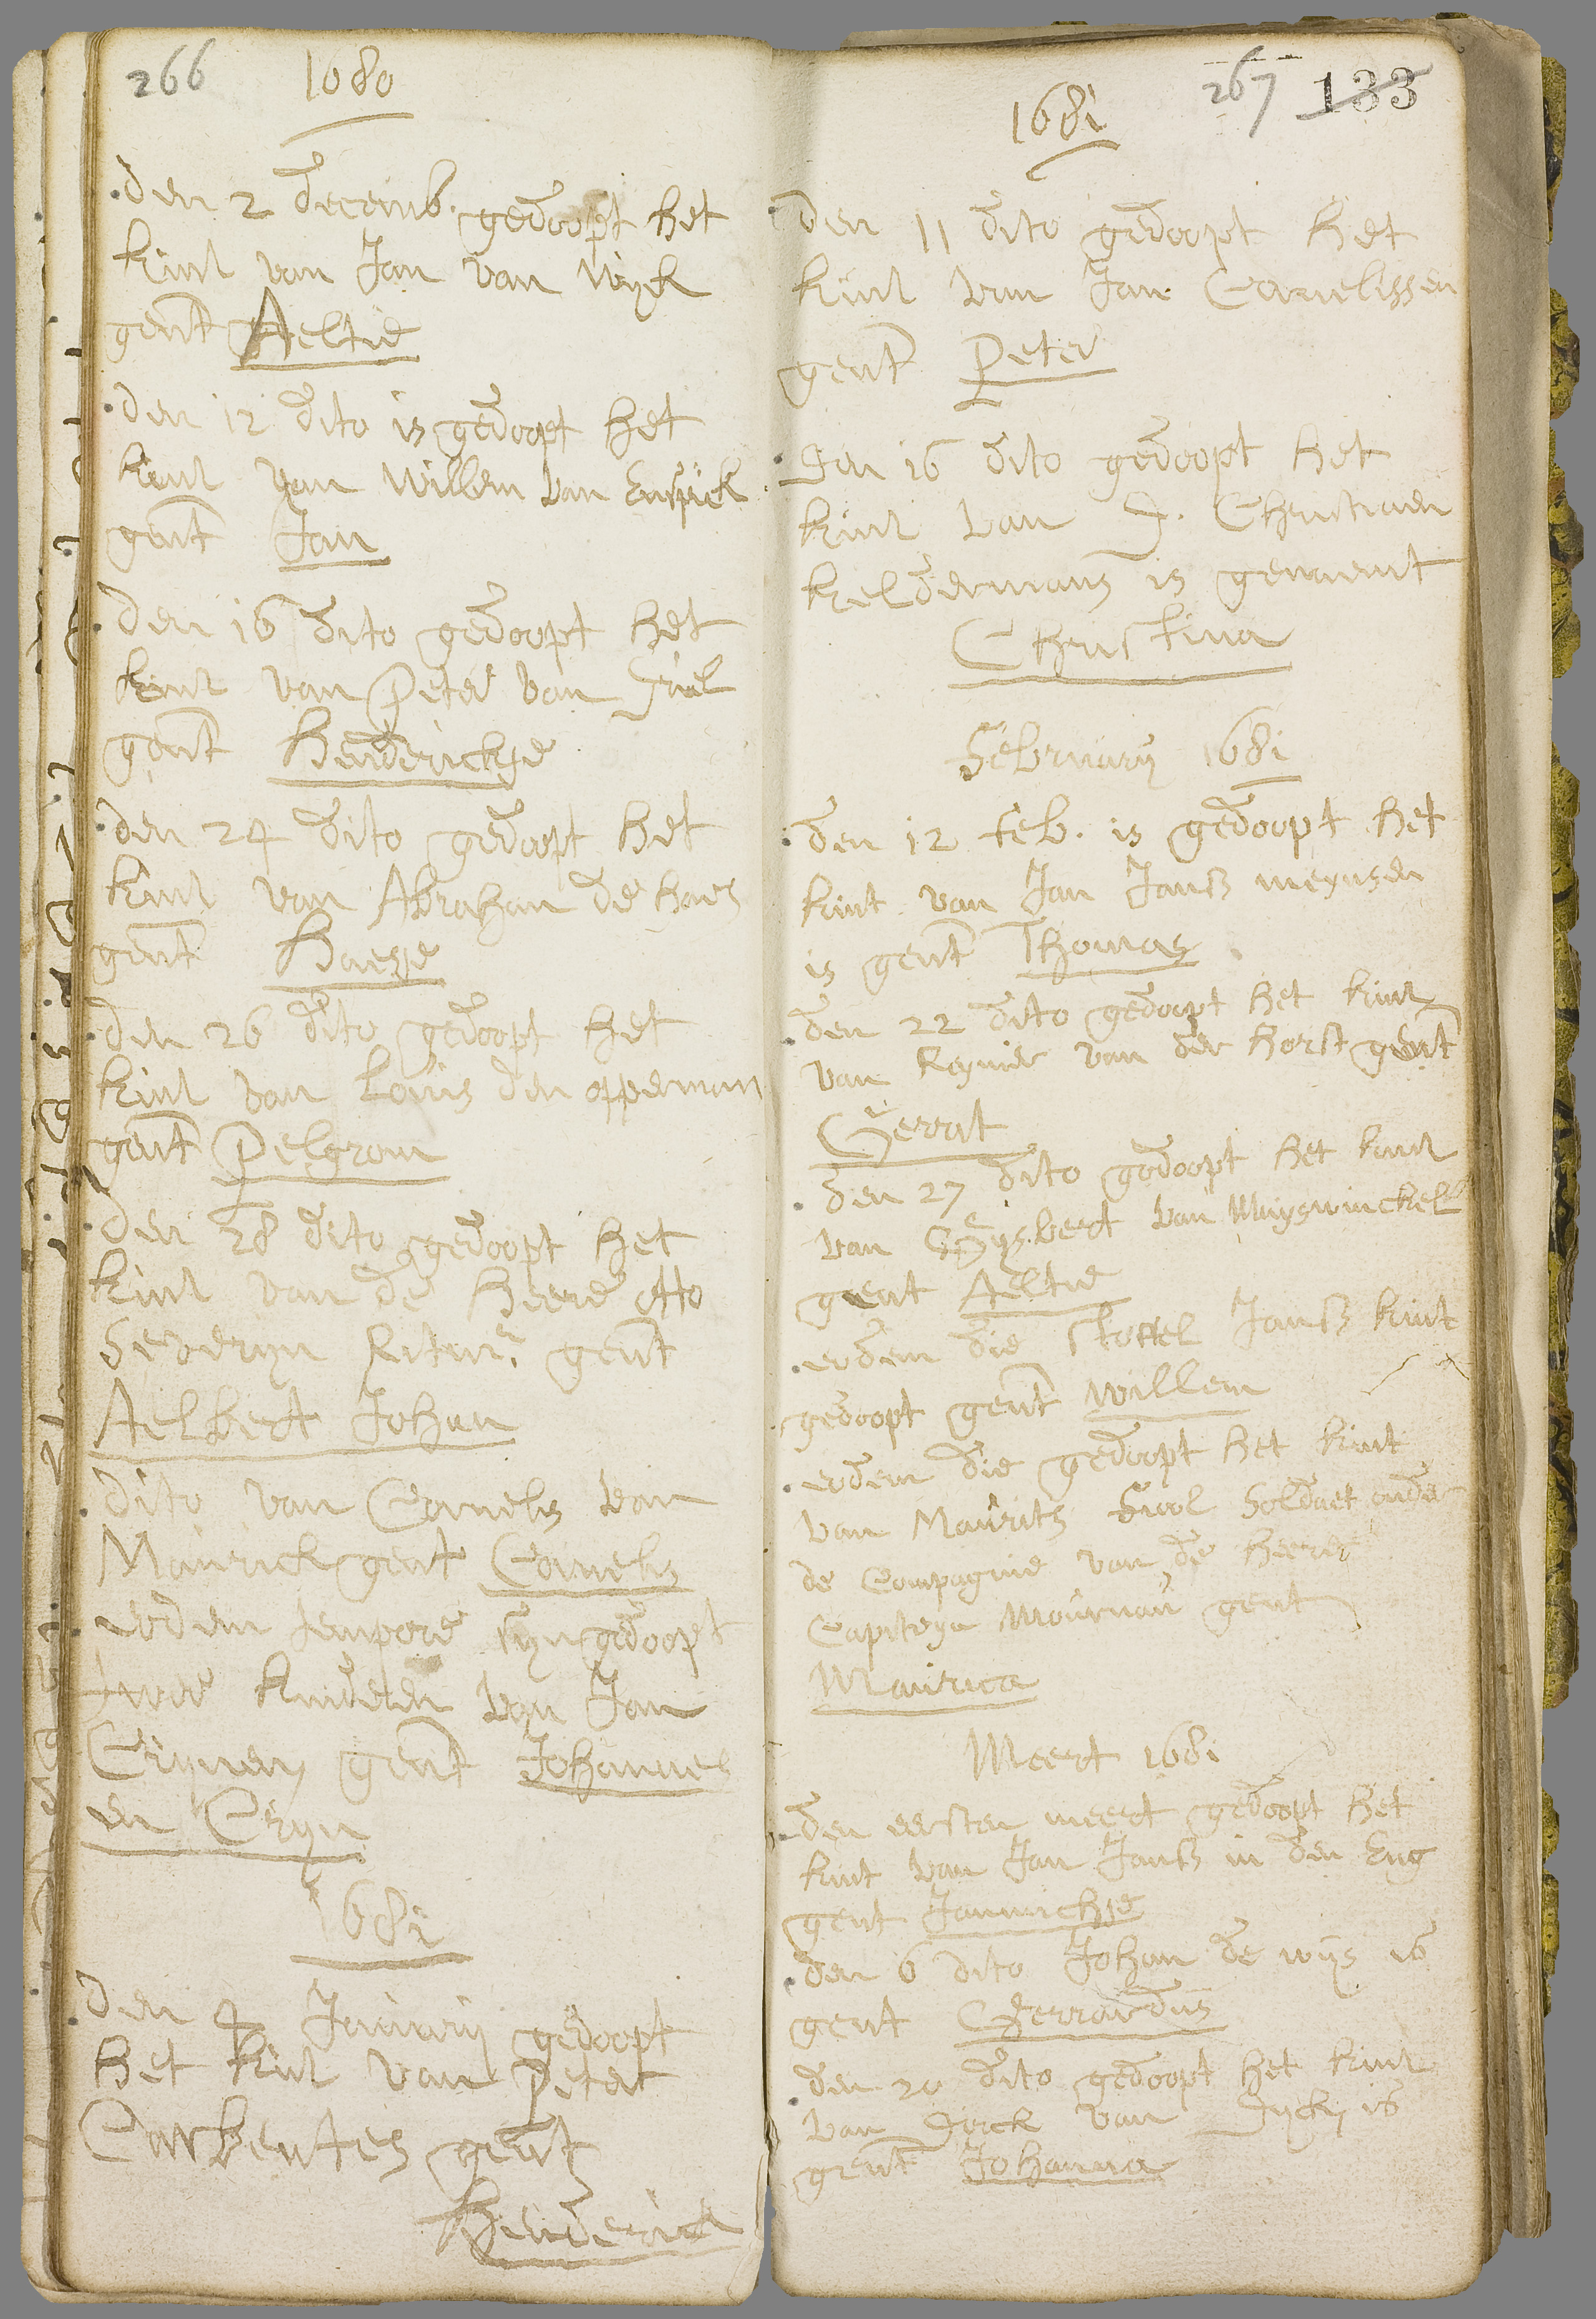 266 1680
den 2 decemb. gedoopt het
kint van Jan van Wijck
gent Aeltie
den 12 dito is gedoopt het
kint van Willem van Enspick
gent Jan
den 16 dito gedoopt het
kint van Peter van Tiel
gent Henderickje
den 24 dito gedoopt het
kint van Abraham de haes
gent Haesje
den 26 dito gedoopt het
kint van Louis den opperman
gent Pelgrom
den 28 dito gedoopt het
kint van de Heere otto
gent
Aelbert Johan
dito van Cornelis van
Maurick gent Cornelis
eodem tempore sijn gedoopt
twee kinderen van Jan
Crijnen gent Johannes
en Crijn
1681
den 4 January gedoopt
het kint van Peter
gent
Henderick
267 133
1681
den 11 dito gedoopt het
kint van Jan Cornelissen
gent Peter
den 16 dito gedoopt het
kint van D. Christiaen
keldermans is genaemt
Christina
February 1681
den 12 feb. is gedoopt het
kint van Jan Janss meijnsen
is gent Thomas
den 22 dito gedoopt het kint
van Reynier van der horst gent
Gerrit
den 27 dito gedoopt het kint
van Gijsbert van Muyswinckel
gent Aeltie
eodem die Stoffel Janss kint
gedoopt gent Willem
eodem die gedoopt het kint
van Maurits Soldaet onder
de Compagnie van de heere
Capiteyn Mournau gent
Maurica
Meert 1681
den eersten meert gedoopt het
kint van Jan Janss in den Eng
gent Jannichje
den 6 dito Johan de wijs is
gent Gerrardus
den 20 dito gedoopt het kint
van Dirck van Dijck is
gent Johanna